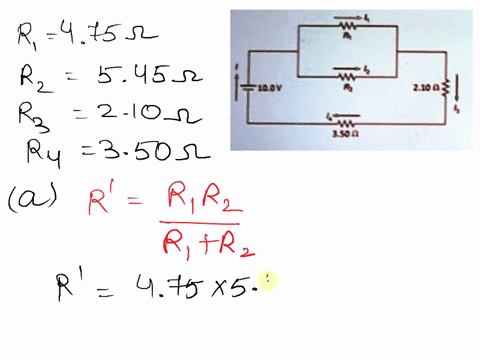 R₁ = 4.75 Ω
R₂ = 5.45 Ω
R₃ = 2.10 Ω
R₄ = 3.50 Ω
I₁
R₁
I₂
R₂
I
10.0 V
2.10 Ω
I₃
I₄
3.50 Ω
(a) R' = R₁ R₂
R₁ + R₂
R' = 4.75 × 5.